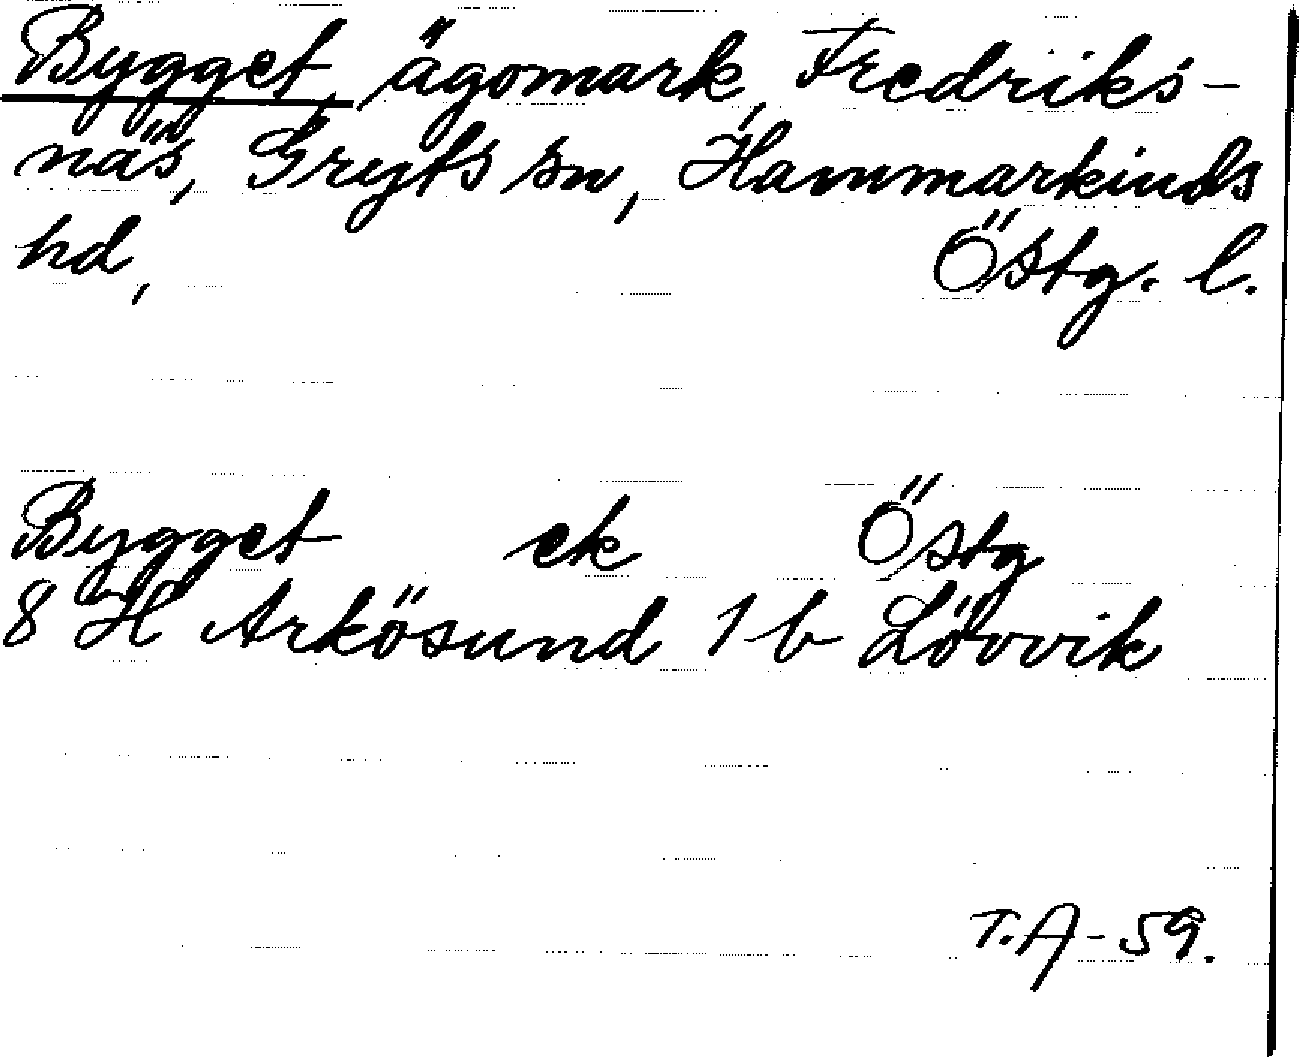 Bygget, ägomark, Fredriks-
näs, Gryts sn, Hammarkinds
hd, Östg. l.
Bygget ek Östg
8 H Arkösund 1 b Lövvik
T.A-59.